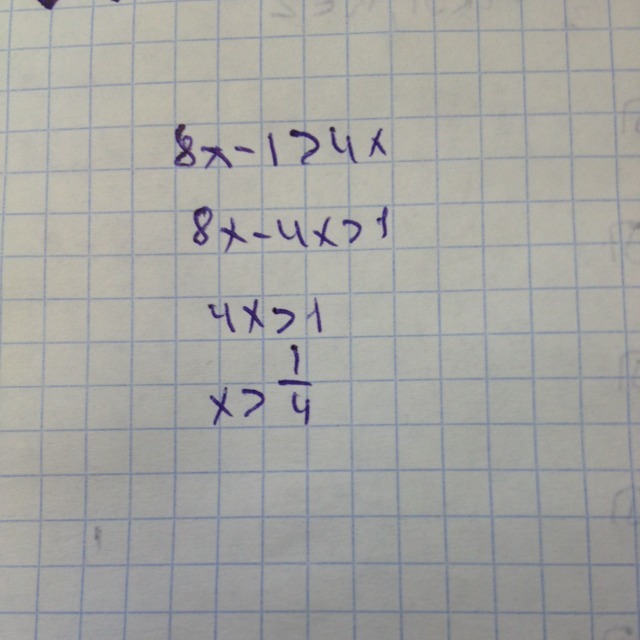 8x-1>4x
8x-4x>1
4x>1
x> 1/4